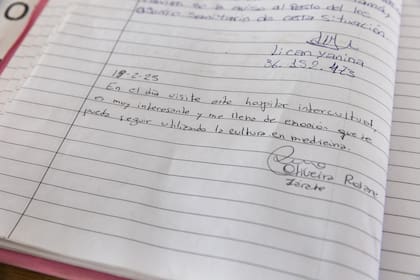 se le aviso al Resto del
sanitario de esta situación.
Lican Yanina
36.152.473
18-2-25
En el día visite este hospital intercultural,
es muy interesante y me llena de emoción que se
pueda seguir utilizando la cultura en medicina.
Oliveira
Zárate